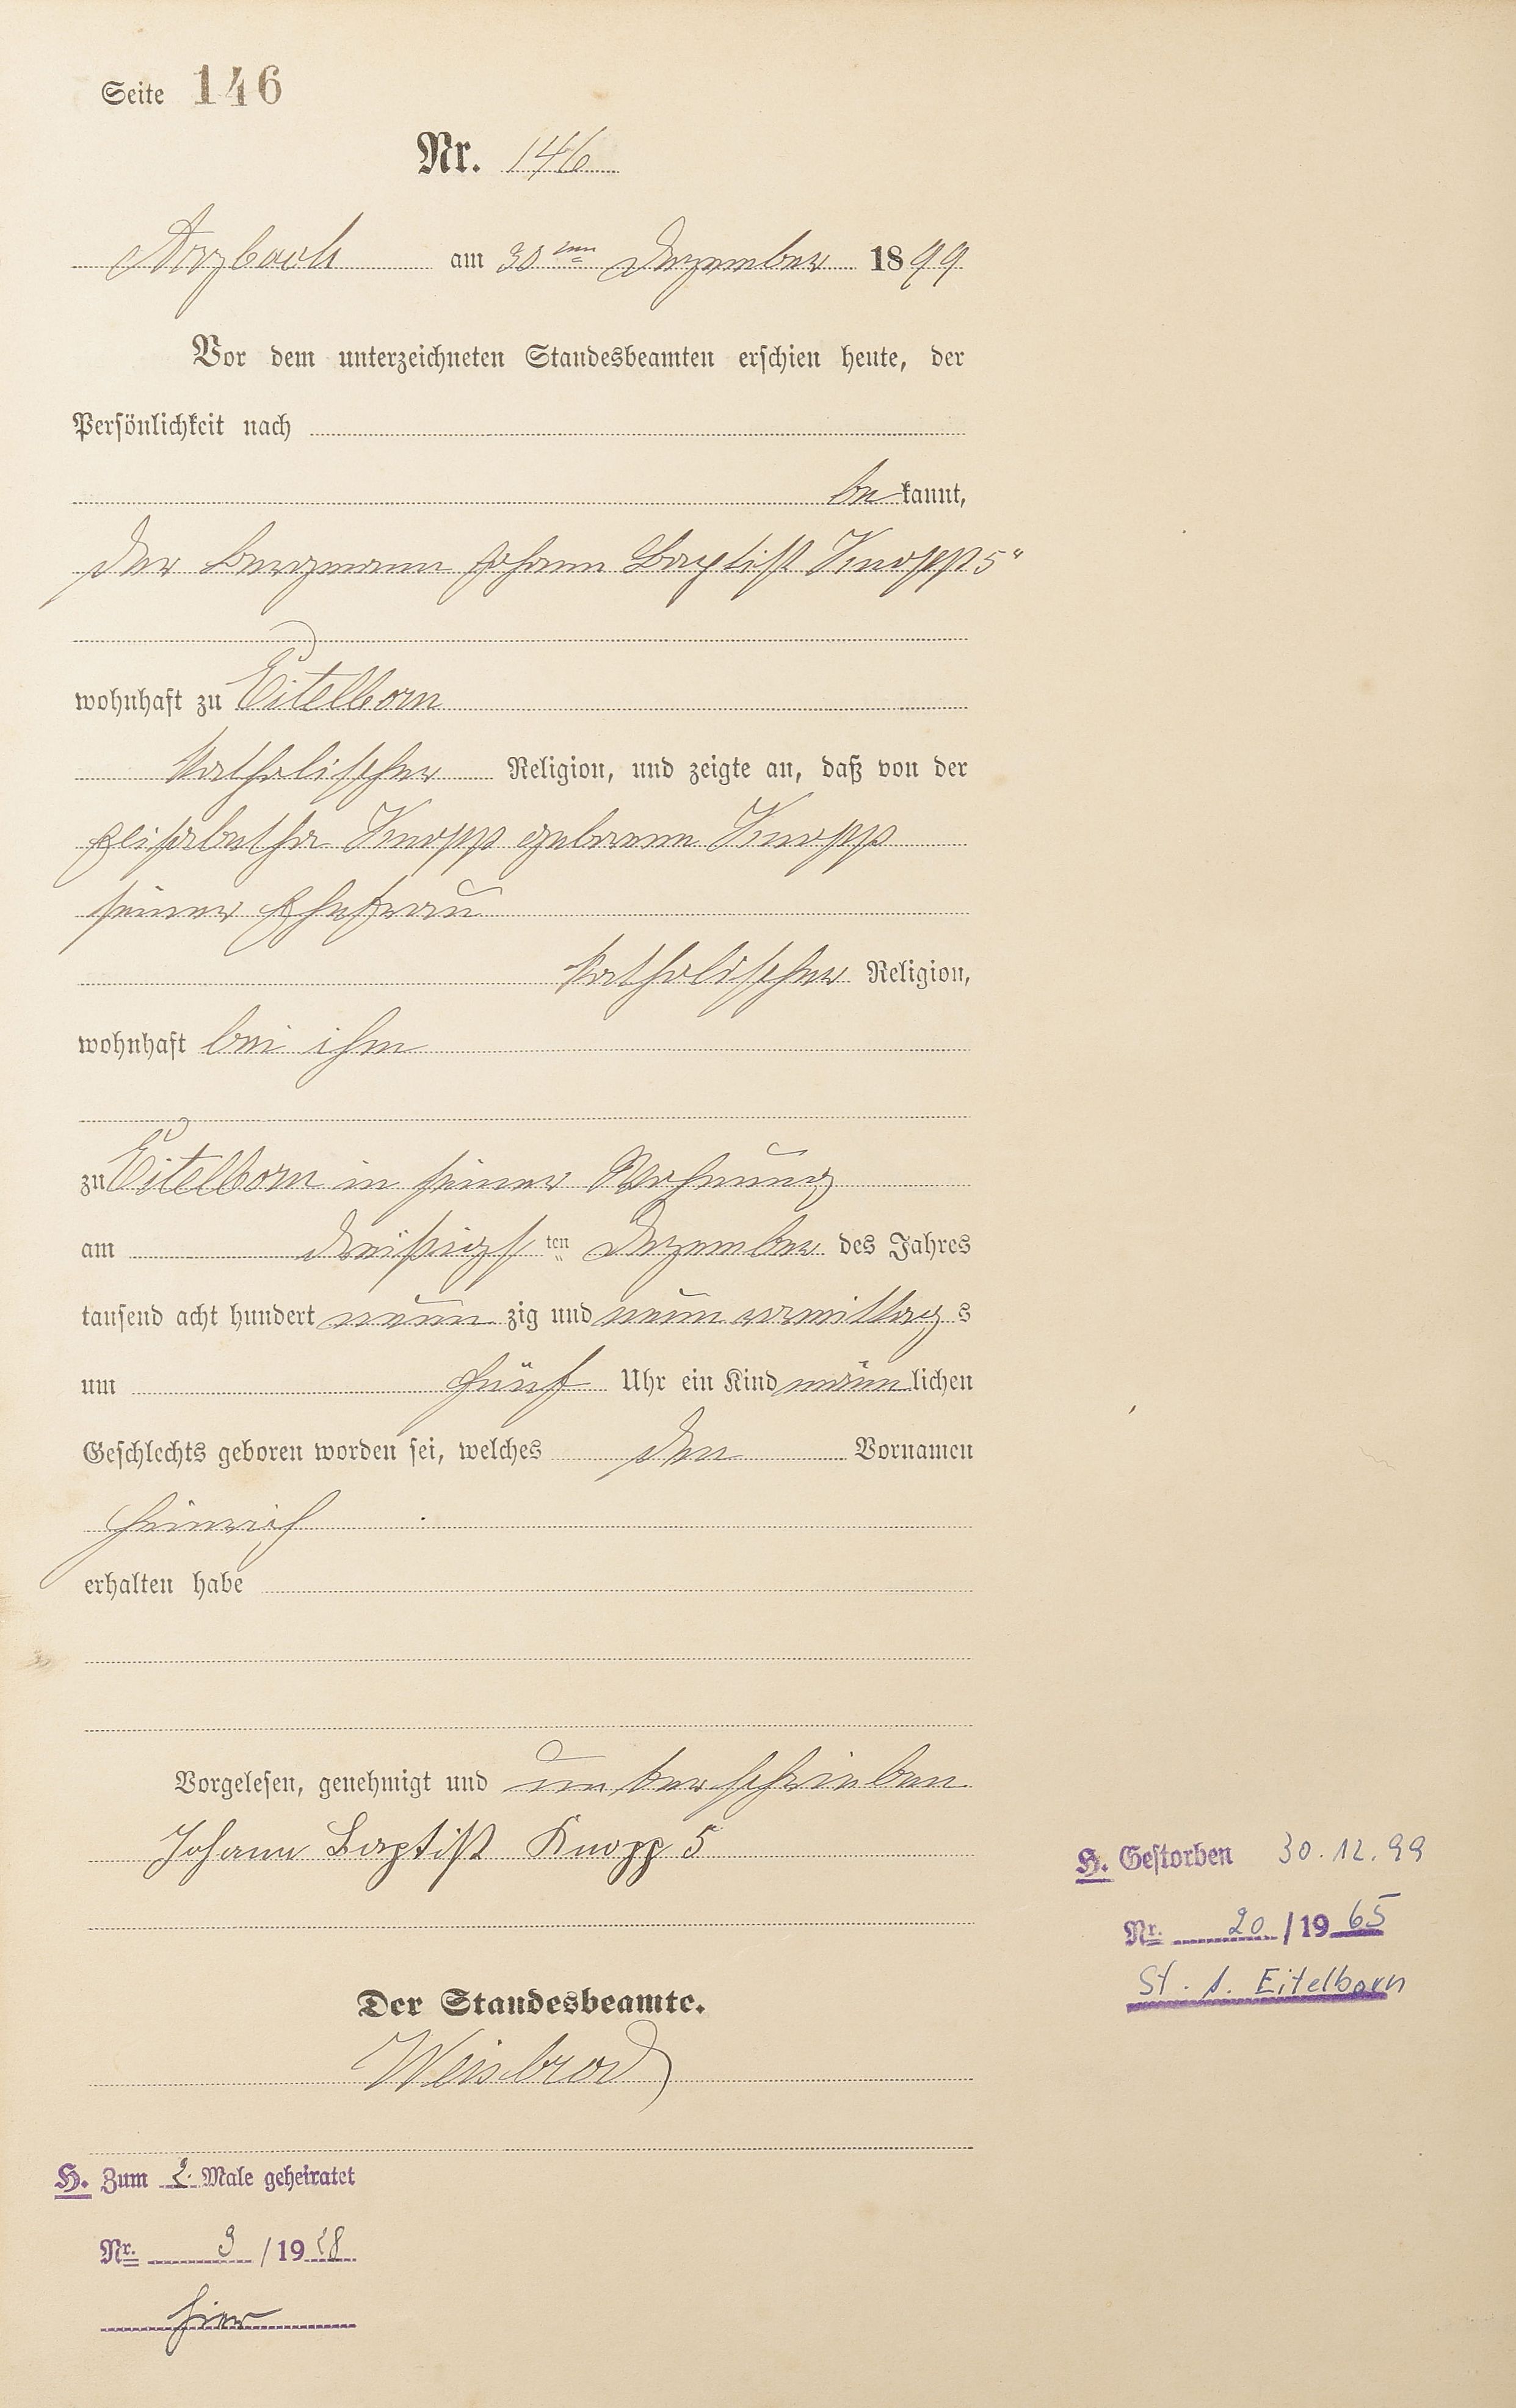 Seite 146
Nr. 146
Arzbach am 30ten Dezember 1899
Vor dem unterzeichneten Standesbeamten erschien heute, der
Persönlichkeit nach
bekannt,
der Bergmann Johann Baptist Knopp 5"
wohnhaft zu Eitelborn
katholischer Religion, und zeigte an, daß von der
Elisabetha Knopp geborene Knopp
seiner Ehefrau
katholischer Religion,
wohnhaft bei ihm
zu Eitelborn in seiner Wohnung
am dreißigsten Dezember des Jahres
tausend acht hundert neunzig und neun vormittags
um fünf Uhr ein Kind männlichen
Geschlechts geboren worden sei, welches den Vornamen
Heinrich
erhalten habe
Vorgelesen, genehmigt und unterschrieben
Johann Baptist Knopp 5
Der Standesbeamte.
Weisbrod
H. Zum 2. Male geheiratet
Nr. 9/19
hier
H. Gestorben 30.12.99
Nr. 20/1965
St. A. Eitelborn